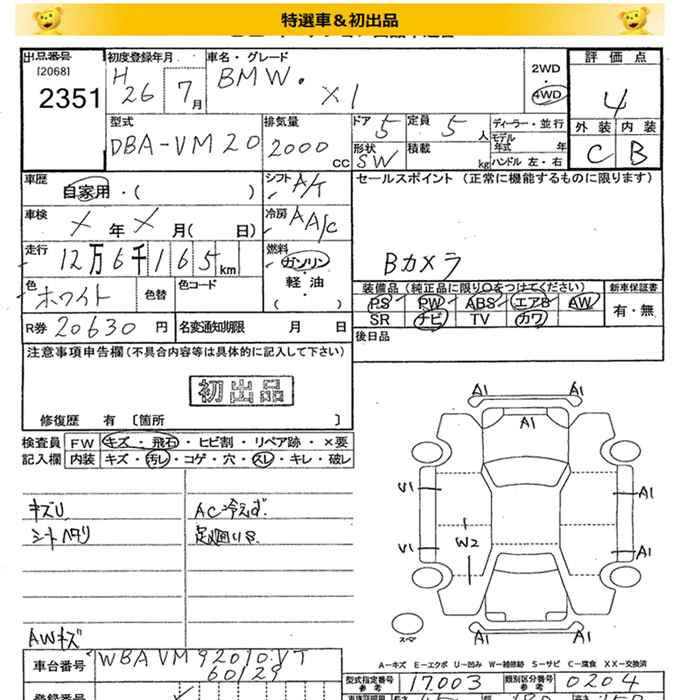 特選車&初出品
出品番号 初度登録年月 車名・グレード
[2068]
2351
H 26 7月
BMW. X1
2WD
4WD
評価点
4
外装 内装
C B
型式 排気量 ドア 定員 ディーラー・並行
DBA-VM20 2000 CC 5 5人
形状 積載 モデル年式 年
SW kg ハンドル 左・右
車歴 シフト セールスポイント (正常に機能するものに限ります)
自家用・( ) A/T
車検 冷房
X年X月( 日) AA/C
走行 燃料
12万6千165km ガソリン・軽油・( )
Bカメラ
色 色替 色コード
ホワイト
装備品 (純正品に限り○をつけてください) 新車保証書
PS PW ABS エアB AW 有・無
SR ナビ TV カワ
R券 20630円 名変通知期限 月 日
後日品
注意事項申告欄(不具合内容等は具体的に記入して下さい)
初出品
修復歴 有 〔箇所 〕
検査員 FW キズ・飛石・ヒビ割・リペア跡・×要
記入欄 内装 キズ・汚レ・コゲ・穴・スレ・キレ・破レ
キズU
シートヘタリ
AC冷えず
AWキズ
A1 A1
A1
V1 A1
V1 A1
W2
スペア
A1 A1
A-キズ E-エクボ U-凹み W-補修跡 S-サビ C-腐食 XX-交換済
車台番号 WBAVM92010VT
60129
型式指定番号 参考 17003 類別区分番号 参考 0204
登録番号